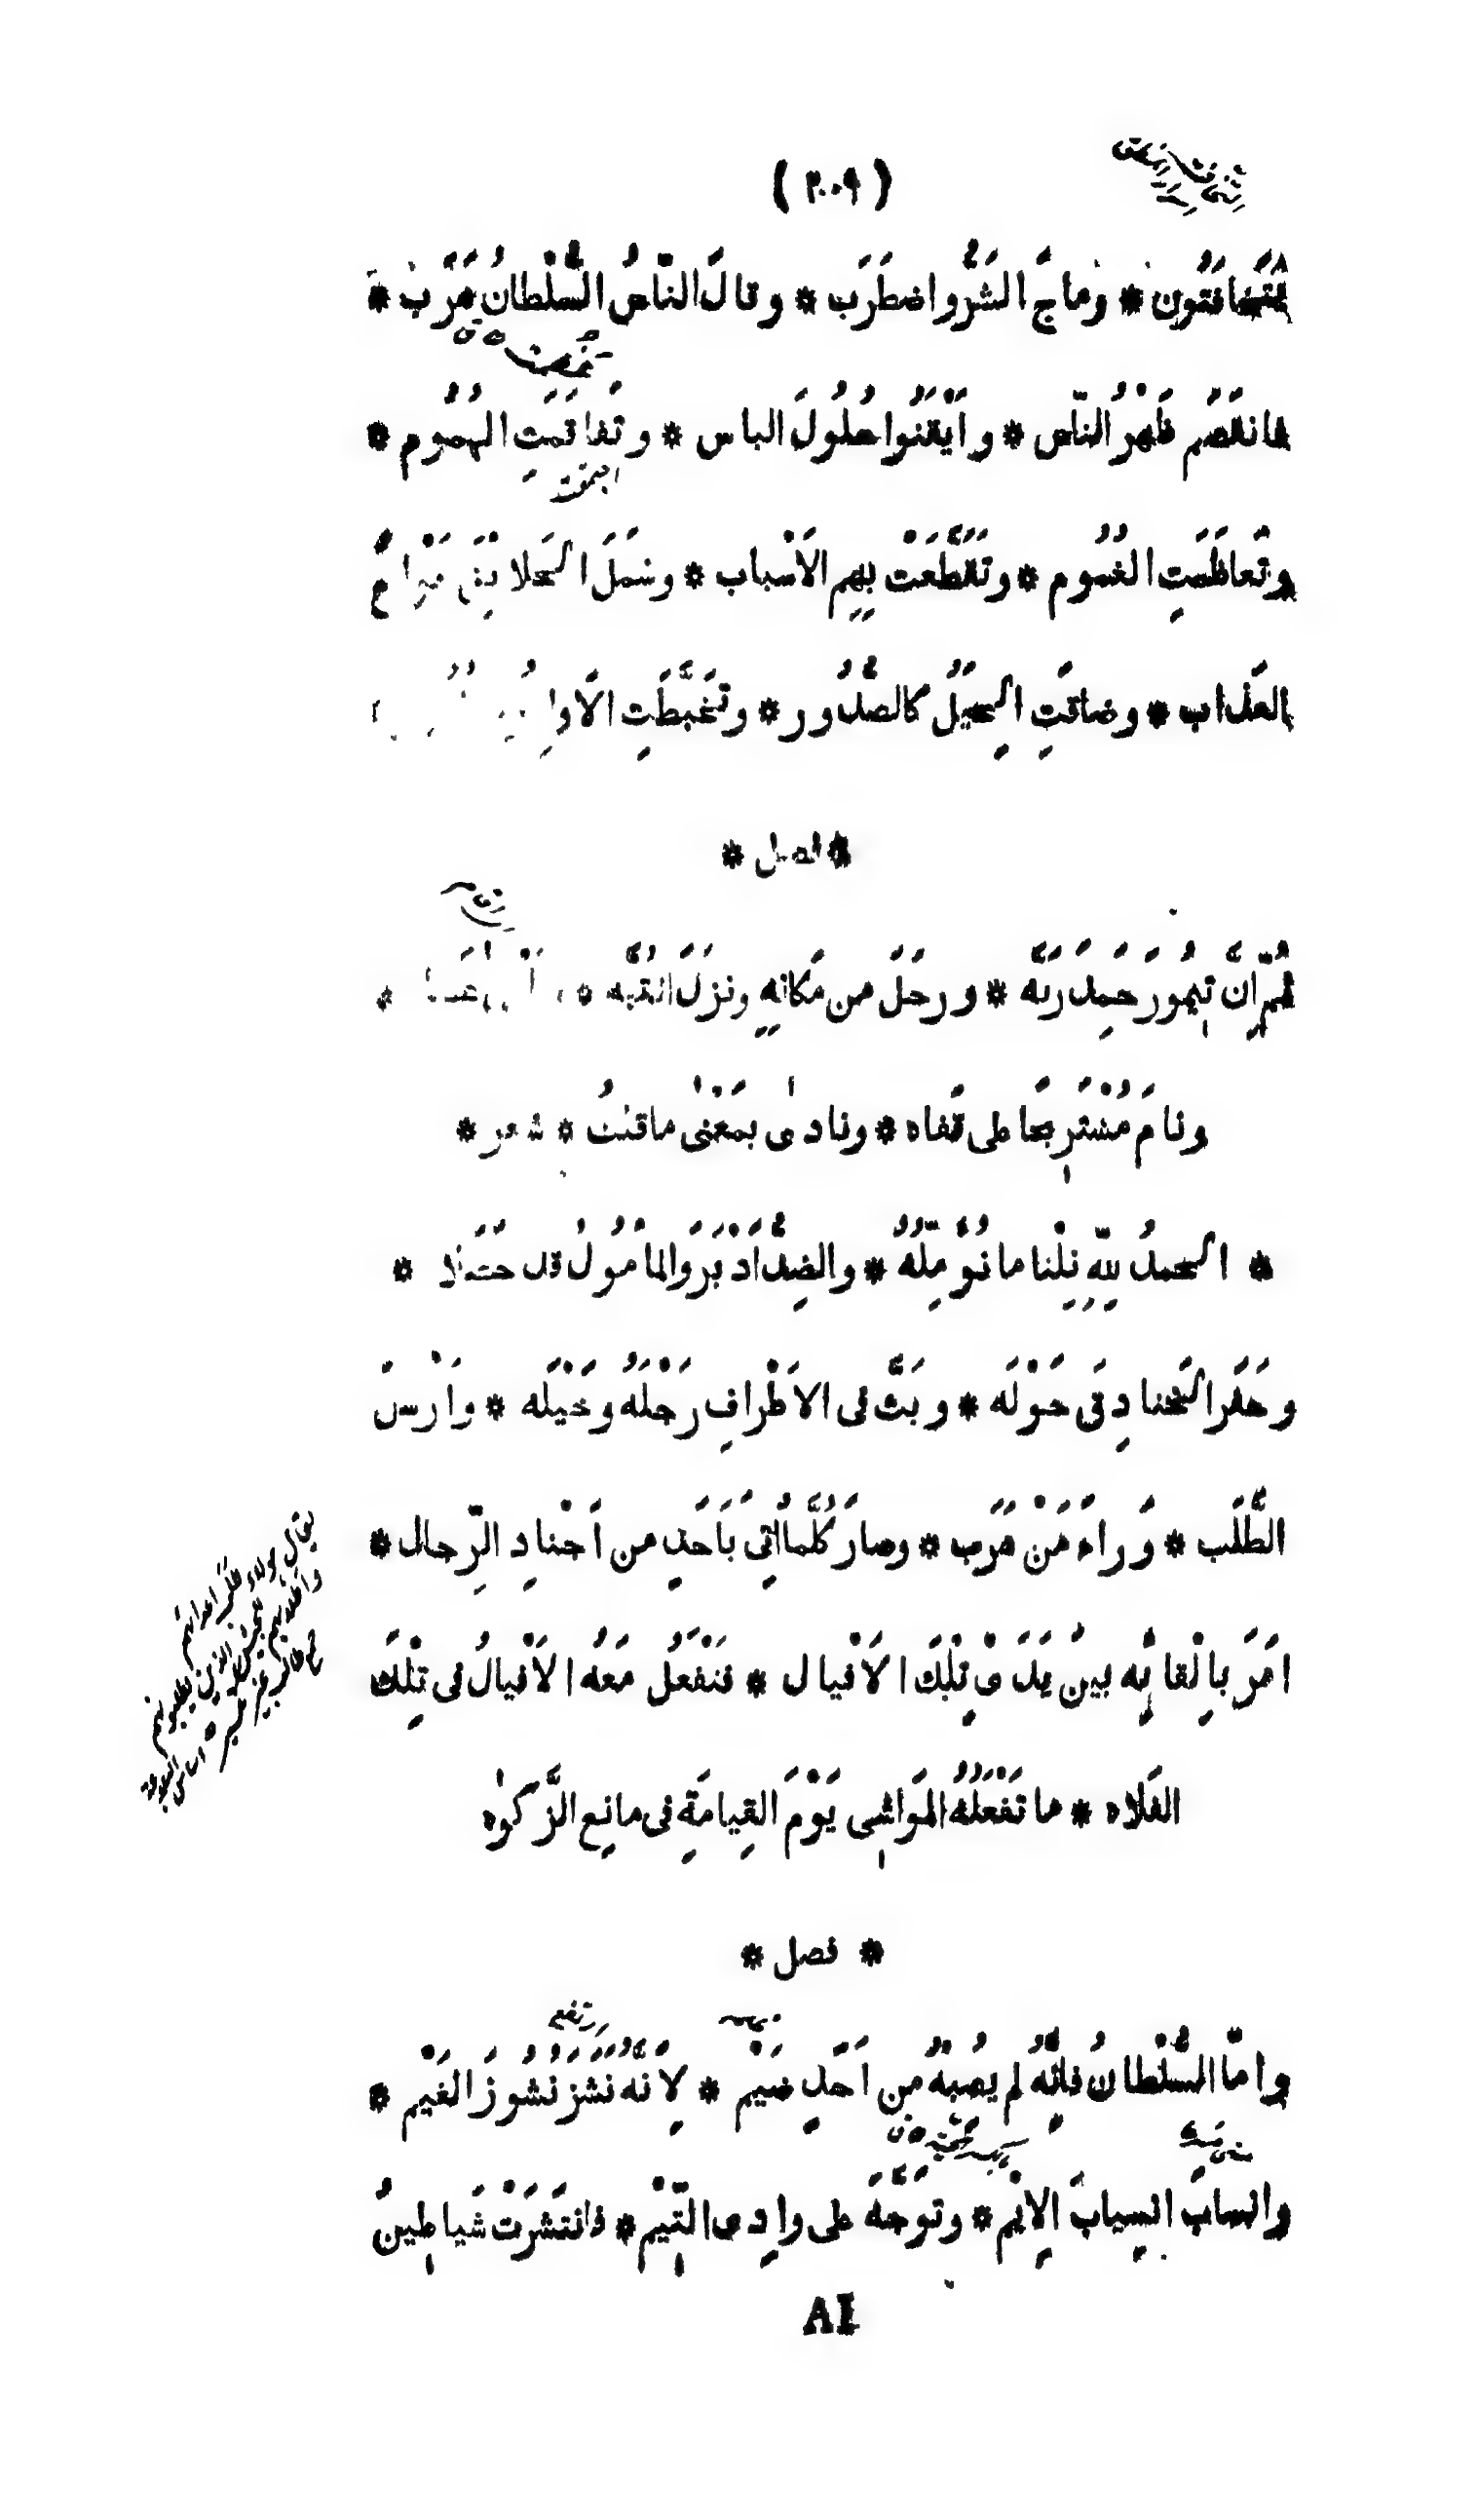 (٢٠٩)
يَتَهافَتُون * وماجَ الشَّرُّ واضطَرَب * وقالَ النّاسُ السُّلْطانُ هَرَب *
فانقَصَم ظَهْرُ النّاس * واَيْقَنُوا حُلُولَ الباس * وتَفاقَمَتِ الهُمُوم *
وتَعاظَمَتِ الغُمُوم * وتَقَطَّعَت بِهِم الاَسْباب * وشَمَلَ الخَلائِقَ
العَذاب * وضاقَتِ الحِيَلُ كالصُّدُور * وتَخَبَّطَتِ
* فصل *
ثُمَّ اِنَّ تِيمُور حَمِدَ رَبَّه * ورحَلَ من مَكانِهِ ونزَلَ القُبَّه *
ونامَ مُسْتَرِيحًا على قَفاه * ونادىٰ بمَعْنىٰ ماقلتُ * شعر *
* الحمدُ لِلّهِ نِلْنا ما نُؤَمِّلُهُ * والضِدُّ اَدْبَرَ والمأمُولُ قد حَصَلا *
وحَفَر الخَنادِقَ حَوْلَه * وبَثَّ فى الاَطْرافِ رَجْلَهُ وخَيْلَه * واَرْسَلَ
الطَّلَب * وَراءَ مَنْ هَرَب * وصارَ كُلَّما اُتِىَ بَاَحَدٍ من اَجْنادِ الرِّجال *
اَمَرَ بِالْقائِه بينَ يَدَىْ تِلْكَ الاَفْيال * فتَفْعَلُ مَعَه الاَفْيالُ فى تِلْكَ
الفَلاه * ما تَفْعَلُهُ المَواشِى يَوْمَ القِيامَةِ فى مانِعِ الزَّكوٰه
* فصل *
وامّا السُّلْطانُ فاِنَّهُ لم يُصِبْهُ من اَحَدٍ ضَيْم * لِاَنَّهُ نَشَزَ نُشُوزَ الغَيْم *
وانسابَ انسِيابَ الاَيْم * وتوَجَّهَ على وادِى التَّيْم * فانتَشَرَتْ شَياطِينُ
AI